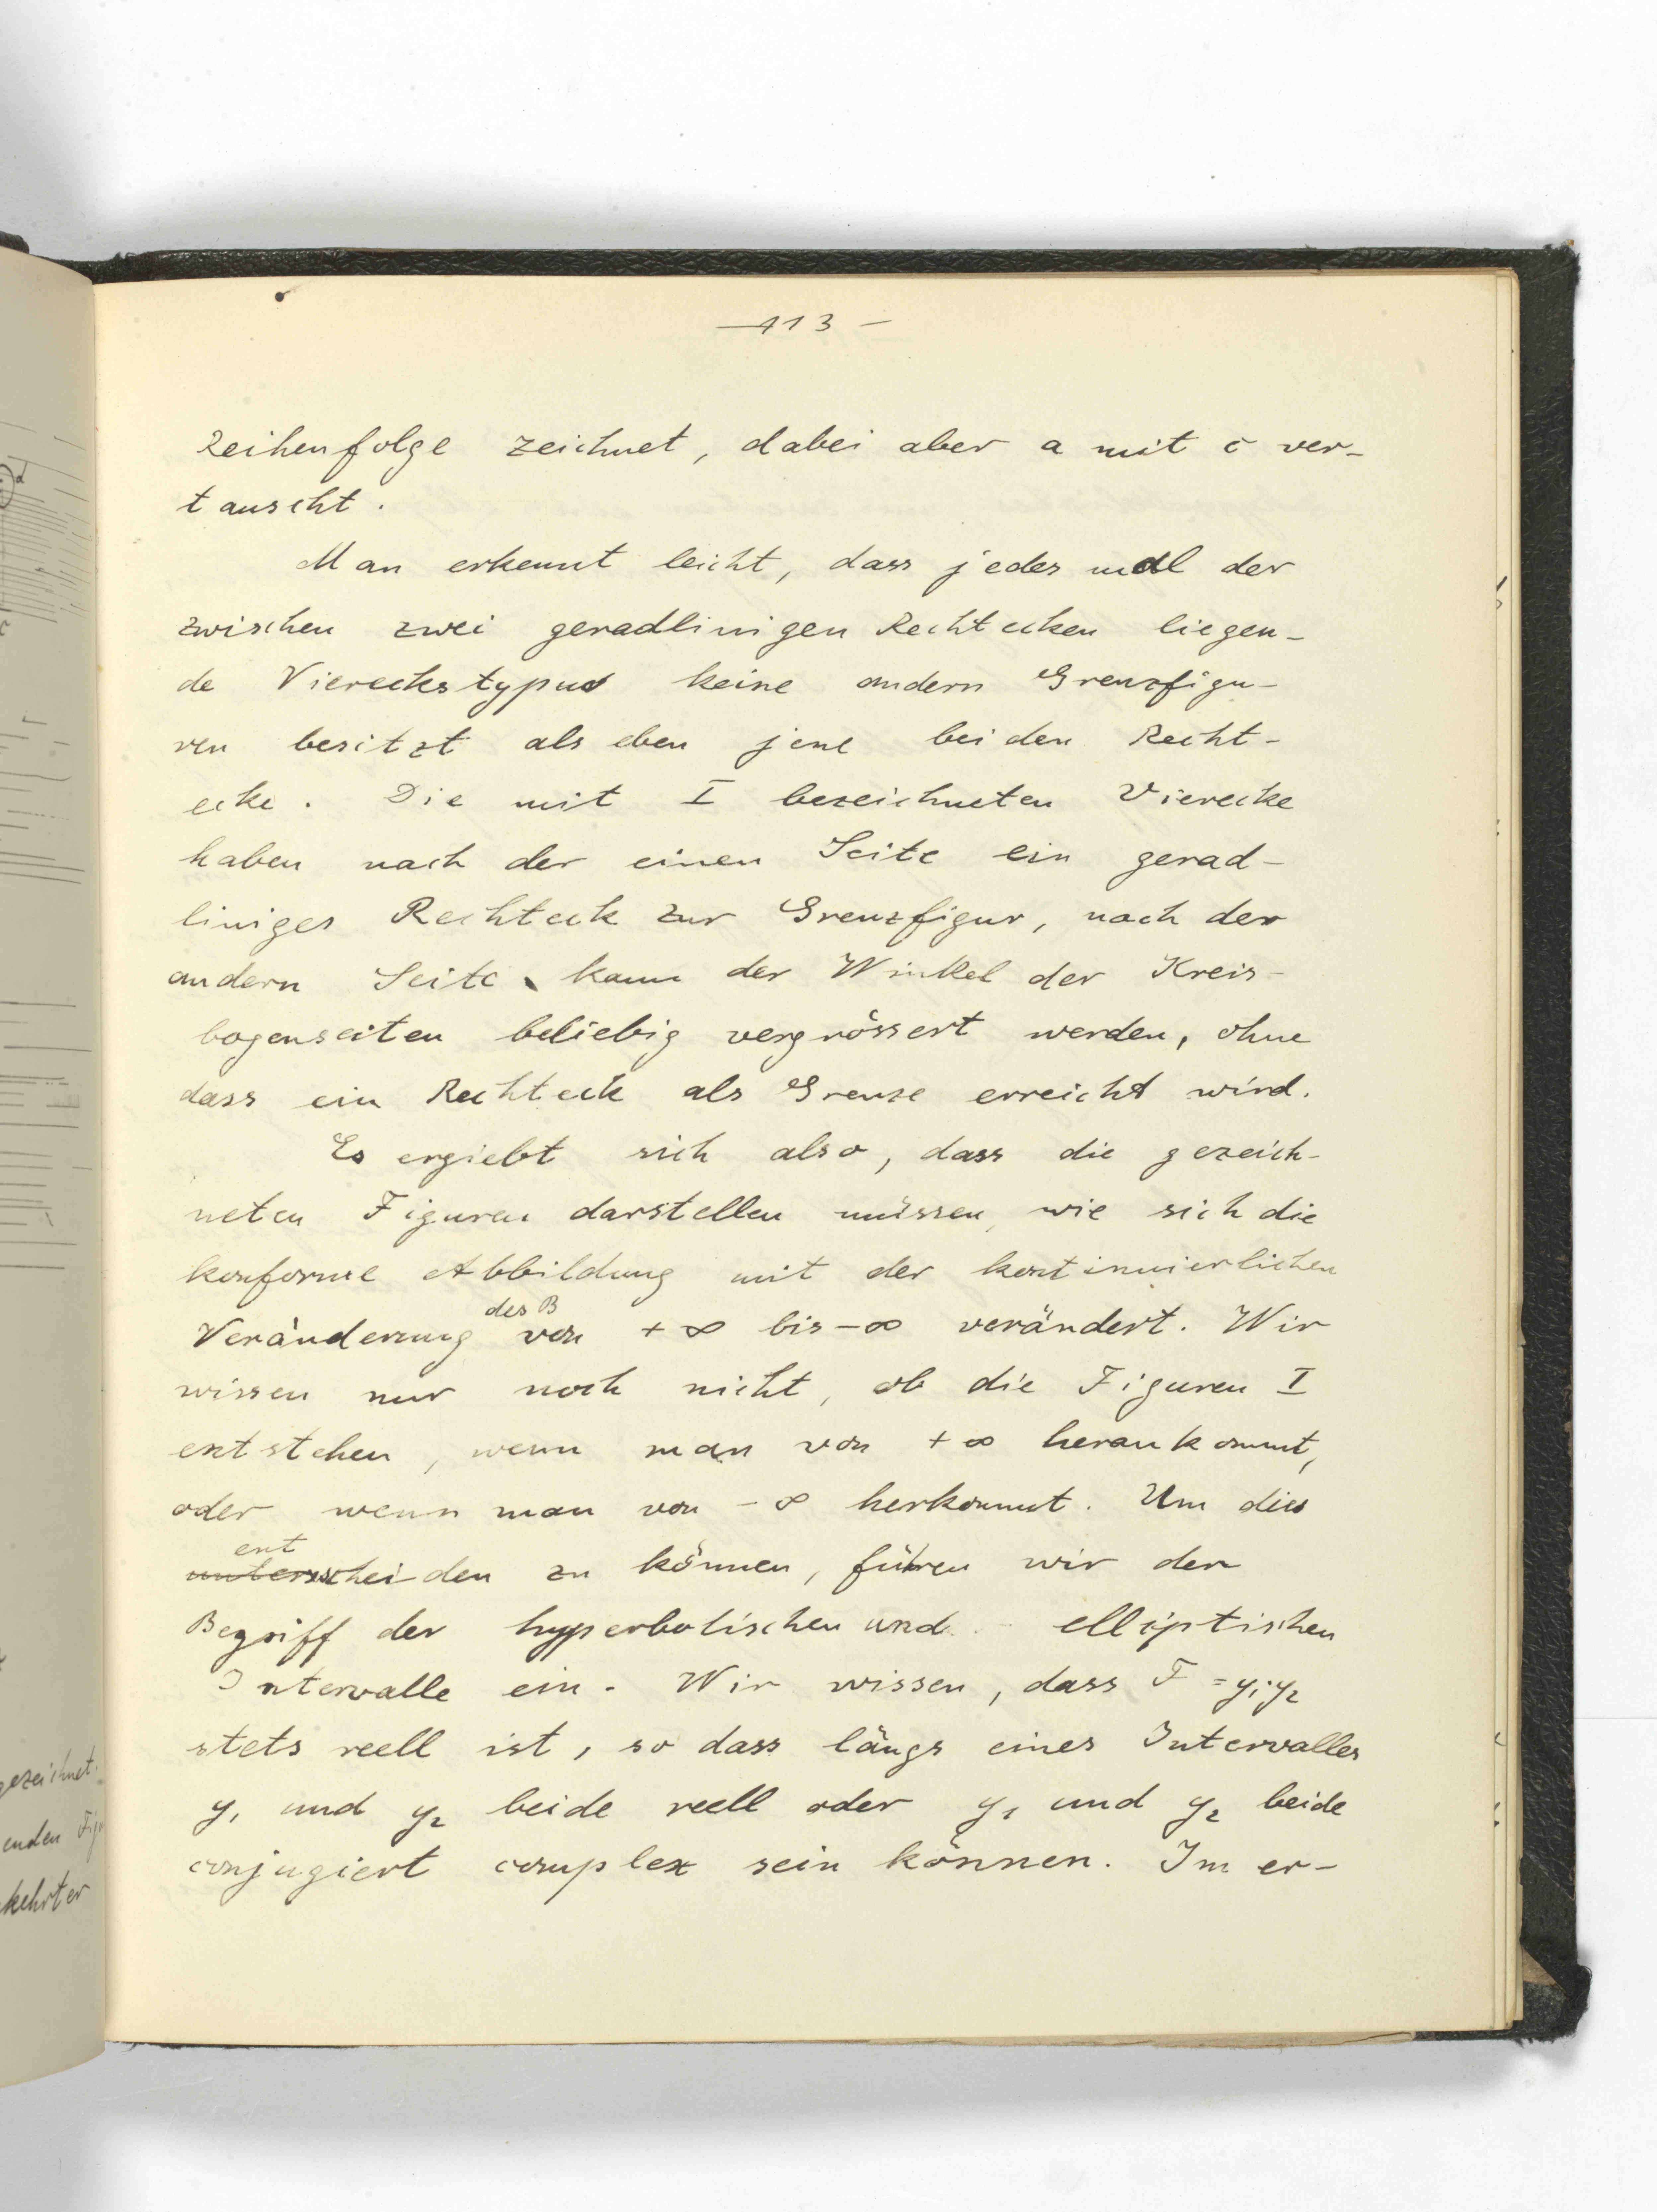 — 113 —
Reihenfolge zeichnet, dabei aber a mit c ver-
tauscht.
Man erkennt leicht, dass jedes mal der
zwischen zwei geradlinigen Rechtecken liegen-
de Viereckstypus keine andern Grenzfigu-
ren besitzt als eben jene beiden Recht-
ecke. Die mit I bezeichneten Vierecke
haben nach der einen Seite ein gerad-
liniges Rechteck zur Grenzfigur, nach der
andern Seite kann der Winkel der Kreis-
bogenseiten beliebig vergrössert werden, ohne
dass ein Rechteck als Grenze erreicht wird.
Es ergiebt sich also, dass die gezeich-
neten Figuren darstellen müssen, wie sich die
konforme Abbildung mit der kontinuierlichen
des B
Veränderung von +∞ bis -∞ verändert. Wir
wissen nur noch nicht, ob die Figuren I
entstehen, wenn man von +∞ herankommt,
oder wenn man von -∞ herkommt. Um dies
ent
unterscheiden zu können, führen wir den
Begriff der hyperbolischen und elliptischen
Intervalle ein. Wir wissen, dass F = y₁·y₂
stets reell ist, so dass längs eines Intervalles
y₁ und y₂ beide reell oder y₁ und y₂ beide
conjugiert complex sein können. Im er-
gezeichnet.
enden
kehrter
d
c